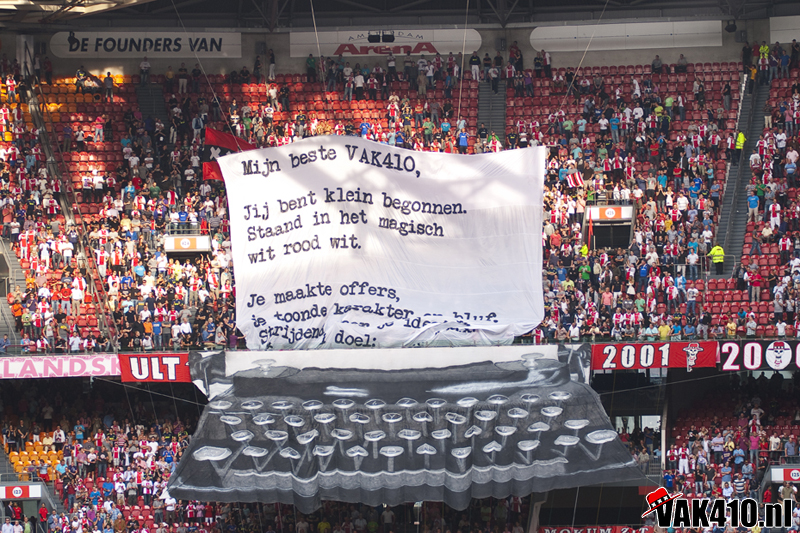 DE FOUNDERS VAN
AMSTERDAM
ArenA
Mijn beste VAK410,
Jij bent klein begonnen.
Staand in het magisch
wit rood wit.
Je maakte offers,
je toonde karakter en bluf.
Strijdend
doel:
LANDS
ULT
2001
MOKUM
VAK410.nl